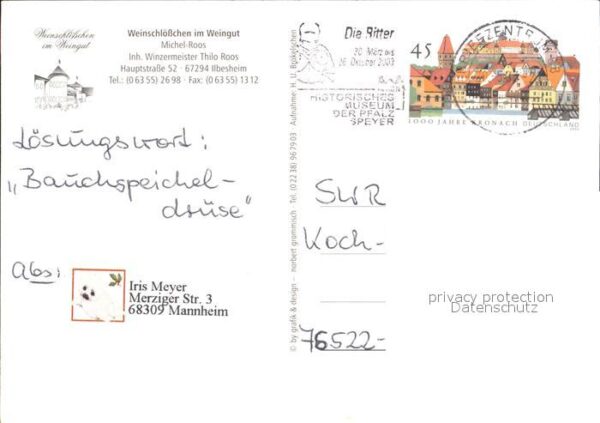 Weinschlößchen
im Weingut
Weinschlößchen im Weingut
Michel-Roos
Inh. Winzermeister Thilo Roos
Hauptstraße 52 · 67294 Ilbesheim
Tel.: (0 63 55) 26 98 · Fax: (0 63 55) 13 12
Lösungswort:
„Bauchspeichel-
drüse"
Abs:
Iris Meyer
Merziger Str. 3
68309 Mannheim
© by grafik & design – norbert grammisch · Tel. (0 22 38) 96 79 03 · Aufnahme: H. U.
Die Ritter
30. März bis
26. Oktober 2003
HISTORISCHES
MUSEUM
DER PFALZ
SPEYER
BRIEFZENTRUM
45
1000 JAHRE KRONACH DEUTSCHLAND
SWR
Koch-
76522-
privacy protection
Datenschutz